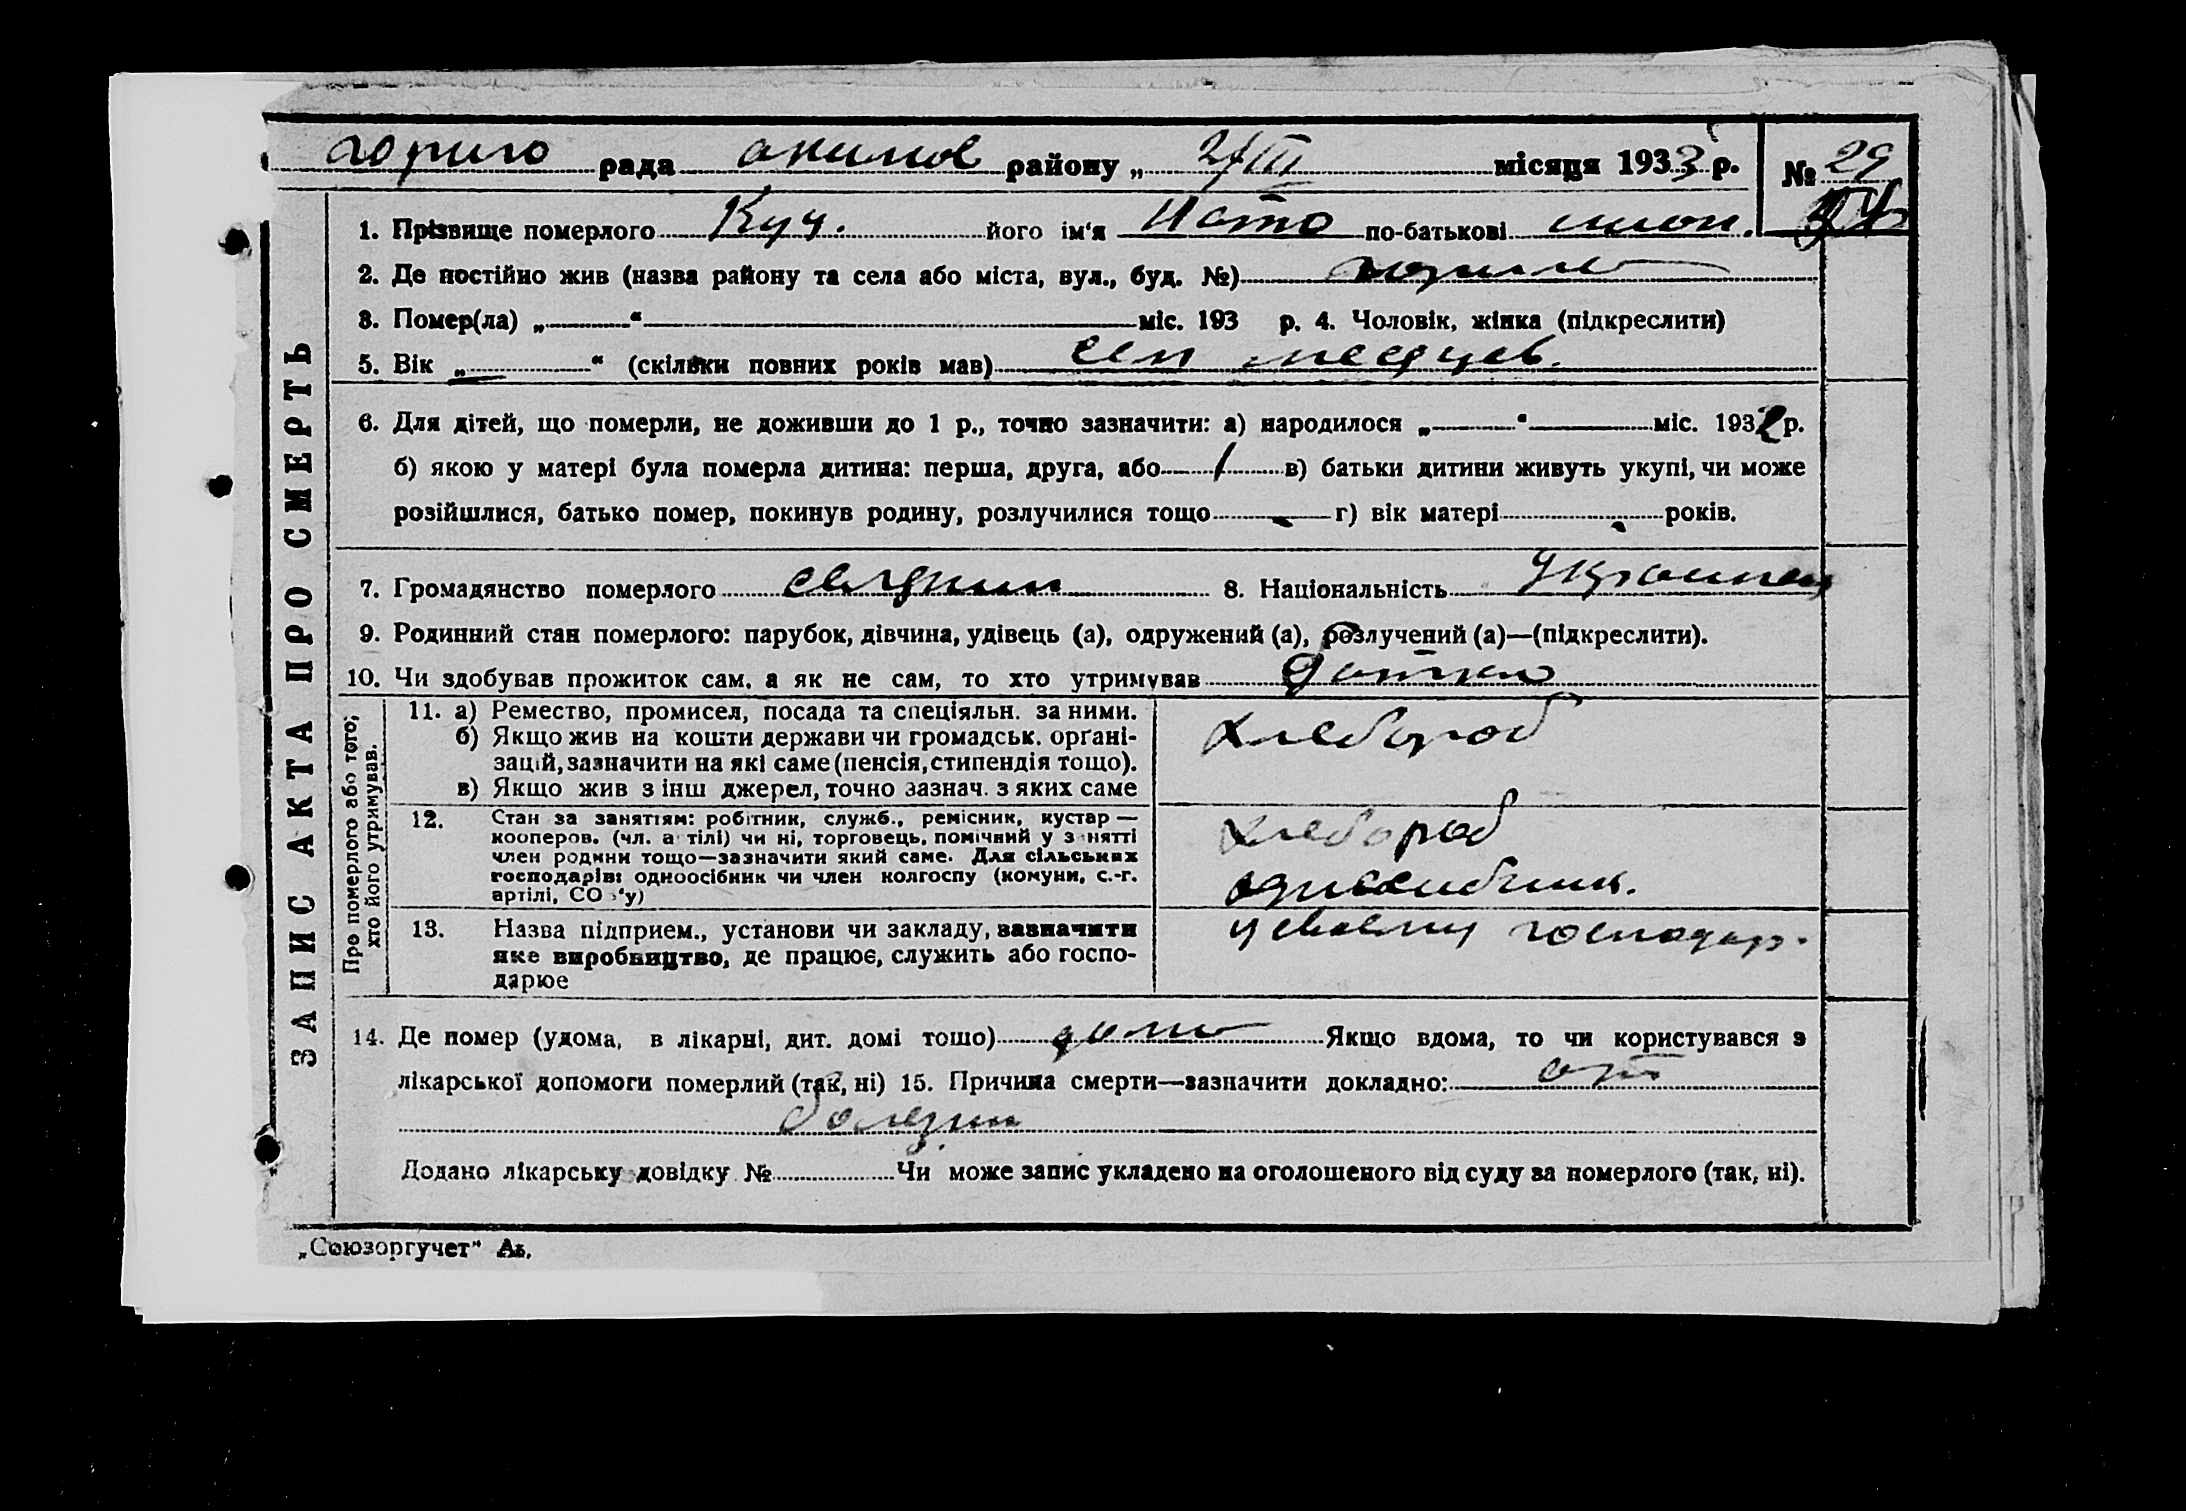 рада района „ 2/III місяця 1933 р. № 29
1. Прізвище померлого Куч. його ім'я по-батькові
2. Де постійно жив (назва району та села або міста, вул., буд. №)
3. Помер(ла) „ “ міс. 193 р. 4. Чоловік, жінка (підкреслити)
5. Вік „ “ (скільки повних років мав) сем месяцев.
6. Для дітей, що померли, не доживши до 1 р., точно зазначити: а) народилося „ “ міс. 1932 р.
б) якою у матері була померла дитина: перша, друга, або / в) батьки дитини живуть укупі, чи може
розійшлися, батько помер, покинув родину, розлучилися тощо г) вік матері років.
7. Громадянство померлого 8. Національність Украинец
9. Родинний стан померлого: парубок, дівчина, удівець (а), одружений (а), розлучений (а)—(підкреслити).
10. Чи здобував прожиток сам, а як не сам, то хто утримував батько
ЗАПИС АКТА ПРО СМЕРТЬ
Про померлого або того,
хто його утримував.
11. а) Ремество, промисел, посада та спеціяльн. за ними.
б) Якщо жив на кошти держави чи громадськ. орґані-
зацій, зазначити на які саме (пенсія, стипендія тощо).
в) Якщо жив з інш джерел, точно зазнач. з яких саме
хлебороб
12. Стан за заняттям: робітник, служб., ремісник, кустар —
кооперов. (чл. артілі) чи ні, торговець, помічний у занятті
член родини тощо—зазначити який саме. Для сільських
господарів: одноосібник чи член колгоспу (комуни, с.-г.
артілі, СО 'у)
хлебороб
одноосибник.
13. Назва підприєм., установи чи закладу, зазначити
яке виробництво, де працює, служить або госпо-
дарює
у своему господар.
14. Де помер (удома, в лікарні, дит. домі тощо) дома Якщо вдома, то чи користувався з
лікарської допомоги померлий (так, ні) 15. Причина смерти—зазначити докладно: от
болезни
Додано лікарську довідку № Чи може запис укладено на оголошеного від суду за померлого (так, ні).
„Союзоргучет“